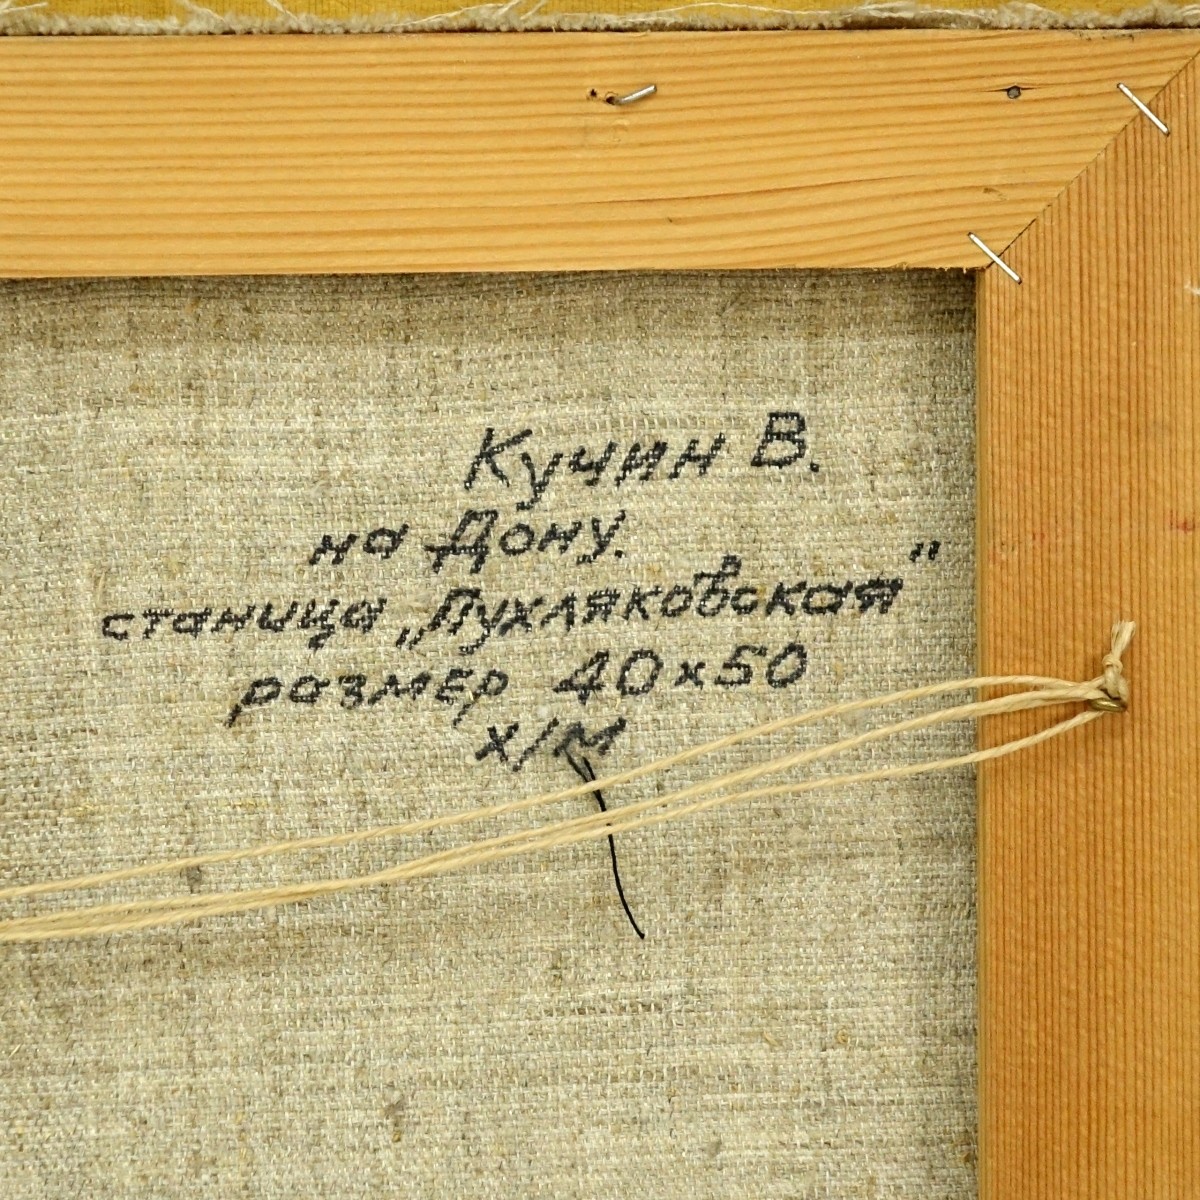 Кучин В.
на Дону.
станица „Пухляковская"
размер 40х50
х/м